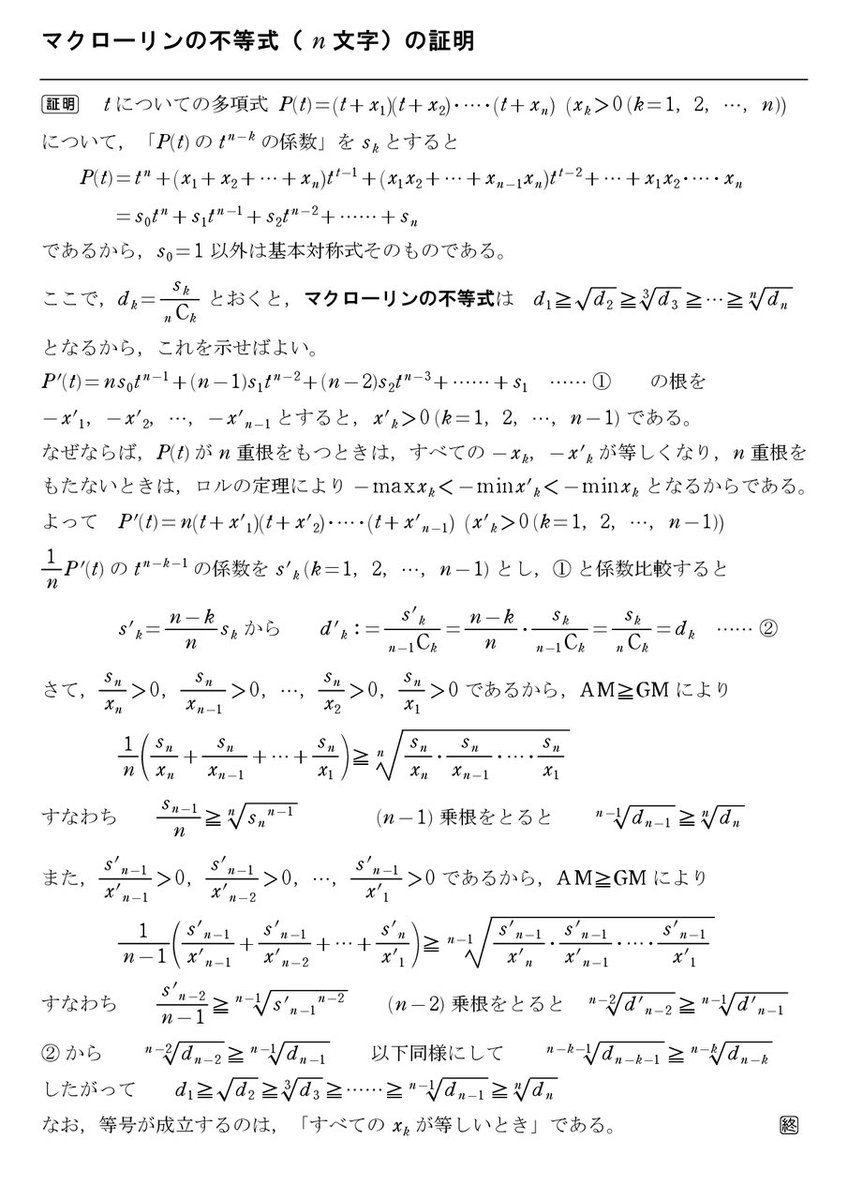 マクローリンの不等式（ n 文字）の証明
証明 tについての多項式 P(t)=(t+x₁)(t+x₂)・…・(t+xₙ) (xₖ>0(k=1, 2, …, n))
について，「P(t) の tⁿ⁻ᵏ の係数」を sₖ とすると
P(t)=tⁿ+(x₁+x₂+…+xₙ)tᵗ⁻¹+(x₁x₂+…+xₙ₋₁xₙ)tᵗ⁻²+…+x₁x₂・…・xₙ
=s₀tⁿ+s₁tⁿ⁻¹+s₂tⁿ⁻²+……+sₙ
であるから，s₀=1 以外は基本対称式そのものである。
ここで，dₖ=sₖ/ₙCₖ とおくと，マクローリンの不等式は d₁≧√d₂≧³√d₃≧…≧ⁿ√dₙ
となるから，これを示せばよい。
P′(t)=ns₀tⁿ⁻¹+(n−1)s₁tⁿ⁻²+(n−2)s₂tⁿ⁻³+……+s₁ ……① の根を
−x′₁，−x′₂，…，−x′ₙ₋₁ とすると，x′ₖ>0(k=1, 2, …, n−1) である。
なぜならば，P(t) が n 重根をもつときは，すべての −xₖ，−x′ₖ が等しくなり，n 重根を
もたないときは，ロルの定理により −maxxₖ<−minx′ₖ<−minxₖ となるからである。
よって P′(t)=n(t+x′₁)(t+x′₂)・…・(t+x′ₙ₋₁) (x′ₖ>0(k=1, 2, …, n−1))
1/n P′(t) の tⁿ⁻ᵏ⁻¹ の係数を s′ₖ(k=1, 2, …, n−1) とし，① と係数比較すると
s′ₖ=(n−k)/n sₖ から d′ₖ:=s′ₖ/ₙ₋₁Cₖ=(n−k)/n・sₖ/ₙ₋₁Cₖ=sₖ/ₙCₖ=dₖ ……②
さて，sₙ/xₙ>0，sₙ/xₙ₋₁>0，…，sₙ/x₂>0，sₙ/x₁>0 であるから，AM≧GM により
1/n(sₙ/xₙ+sₙ/xₙ₋₁+…+sₙ/x₁)≧ⁿ√(sₙ/xₙ・sₙ/xₙ₋₁・…・sₙ/x₁)
すなわち sₙ₋₁/n≧ⁿ√(sₙⁿ⁻¹) (n−1) 乗根をとると ⁿ⁻¹√dₙ₋₁≧ⁿ√dₙ
また，s′ₙ₋₁/x′ₙ₋₁>0，s′ₙ₋₁/x′ₙ₋₂>0，…，s′ₙ₋₁/x′₁>0 であるから，AM≧GM により
1/(n−1)(s′ₙ₋₁/x′ₙ₋₁+s′ₙ₋₁/x′ₙ₋₂+…+s′ₙ/x′₁)≧ⁿ⁻¹√(s′ₙ₋₁/x′ₙ・s′ₙ₋₁/x′ₙ₋₁・…・s′ₙ₋₁/x′₁)
すなわち s′ₙ₋₂/(n−1)≧ⁿ⁻¹√(s′ₙ₋₁ⁿ⁻²) (n−2) 乗根をとると ⁿ⁻²√d′ₙ₋₂≧ⁿ⁻¹√d′ₙ₋₁
② から ⁿ⁻²√dₙ₋₂≧ⁿ⁻¹√dₙ₋₁ 以下同様にして ⁿ⁻ᵏ⁻¹√dₙ₋ₖ₋₁≧ⁿ⁻ᵏ√dₙ₋ₖ
したがって d₁≧√d₂≧³√d₃≧……≧ⁿ⁻¹√dₙ₋₁≧ⁿ√dₙ
なお，等号が成立するのは，「すべての xₖ が等しいとき」である。 終